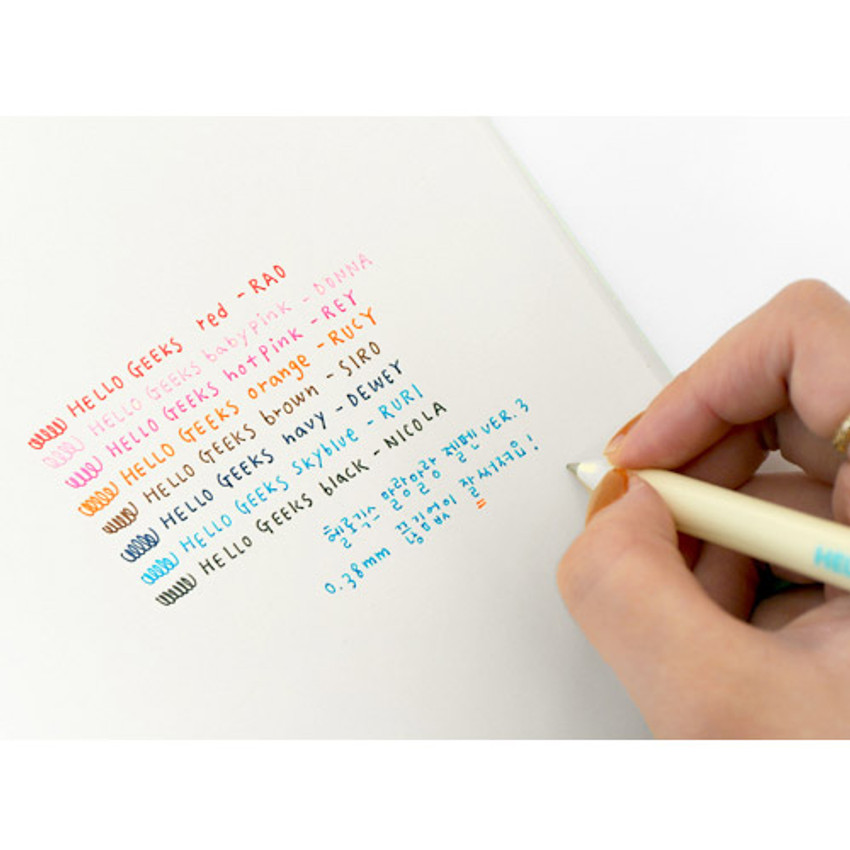 HELLO GEEKS red - RAO
HELLO GEEKS babypink - DONNA
HELLO GEEKS hotpink - REY
HELLO GEEKS orange - RUCY
HELLO GEEKS brown - SIRO
HELLO GEEKS navy - DEWEY
HELLO GEEKS skyblue - RURI
HELLO GEEKS black - NICOLA
헬로긱스 말랑말랑 젤펜 VER.3
0.38mm 끊김없이 잘써져요!